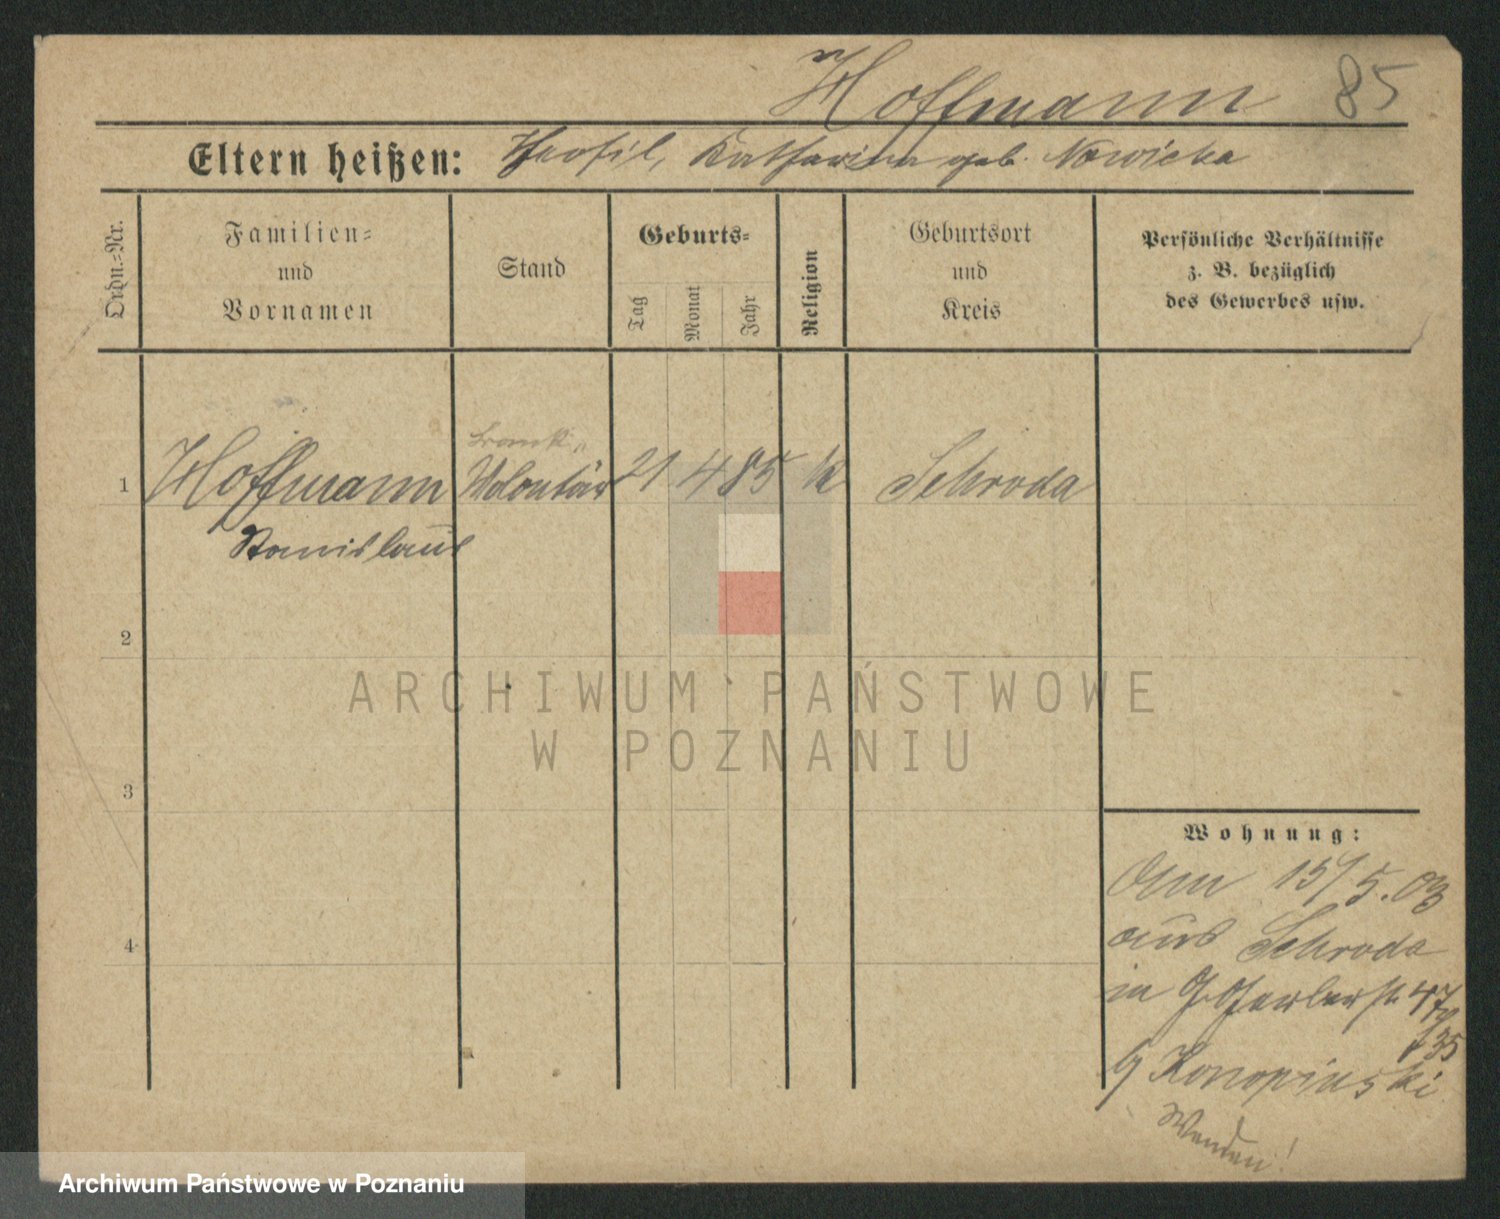 Hoffmann 85
Eltern heißen: Theofil, Katharina geb. Nowicka
Ordn.-Nr.
Familien-
und
Vornamen
Stand
Geburts-
Tag
Monat
Jahr
Religion
Geburtsort
und
Kreis
Persönliche Verhältnisse
z. B. bezüglich
des Gewerbes usw.
1 Hoffmann Volontär 21 4 85 k Schroda
Stanislaus
2
3
4
ARCHIWUM PAŃSTWOWE
W POZNANIU
Wohnung:
Am 15/5.03
aus Schroda
in 47
b/ Konopinski
Wenden!
Archiwum Państwowe w Poznaniu